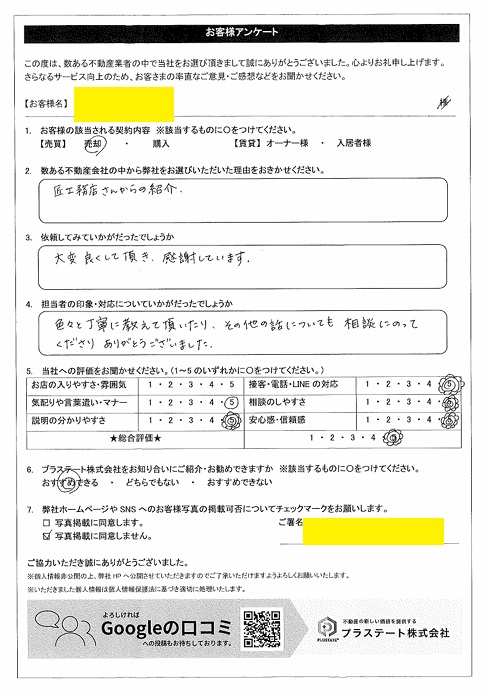 お客様アンケート
この度は、数ある不動産業者の中で当社をお選び頂きまして誠にありがとうございました。心よりお礼申し上げます。
さらなるサービス向上のため、お客さまの率直なご意見・ご感想などをお聞かせください。
【お客様名】 様
1. お客様の該当される契約内容 ※該当するものに〇をつけてください。
【売買】 売却 ・ 購入 【賃貸】 オーナー様 ・ 入居者様
2. 数ある不動産会社の中から弊社をお選びいただいた理由をおきかせください。
匠工務店さんからの紹介.
3. 依頼してみていかがだったでしょうか
大変良くして頂き、感謝しています。
4. 担当者の印象・対応についていかがだったでしょうか
色々と丁寧に教えて頂いたり、その他の話についても相談にのって
くださり ありがとうございました.
5. 当社への評価をお聞かせください。(1～5のいずれかに〇をつけてください。)
お店の入りやすさ・雰囲気 1・2・3・4・5 接客・電話・LINEの対応 1・2・3・4・5
気配りや言葉遣い・マナー 1・2・3・4・5 相談のしやすさ 1・2・3・4・5
説明の分かりやすさ 1・2・3・4・5 安心感・信頼感 1・2・3・4・5
★総合評価★ 1・2・3・4・5
6. プラステート株式会社をお知り合いにご紹介・お勧めできますか ※該当するものに〇をつけてください。
おすすめできる ・ どちらでもない ・ おすすめできない
7. 弊社ホームページやSNSへのお客様写真の掲載可否についてチェックマークをお願いします。
□ 写真掲載に同意します。 ご署名
☑ 写真掲載に同意しません。
ご協力いただき誠にありがとうございました。
※個人情報非公開の上、弊社HPへ公開させていただきますのでご了承いただけますようよろしくお願いいたします。
※いただきました個人情報は個人情報保護法に基づき適切に処理いたします。
よろしければ
Googleの口コミ
への投稿もお待ちしております。
不動産の新しい価値を提供する
プラステート株式会社
PLUSTATE